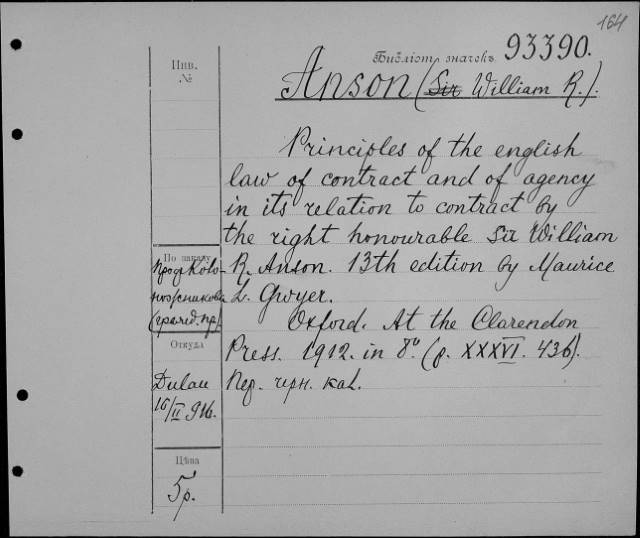 164
Библіот. значокъ 93390.
Anson (Sir William R.).
Инв.
№
Principles of the english
law of contract and of agency
in its relation to contract by
the right honourable Sir William
R. Anson. 13th edition by Maurice
L. Gwyer.
Oxford. At the Clarendon
Press. 1912. in 8° (p. XXXVI. 436).
Пер. чрн. кал.
По заказу
Проф. Коло-
кожникова
(гражд. пр.)
Откуда
Dulau
16/II 916.
Цѣна
5 р.